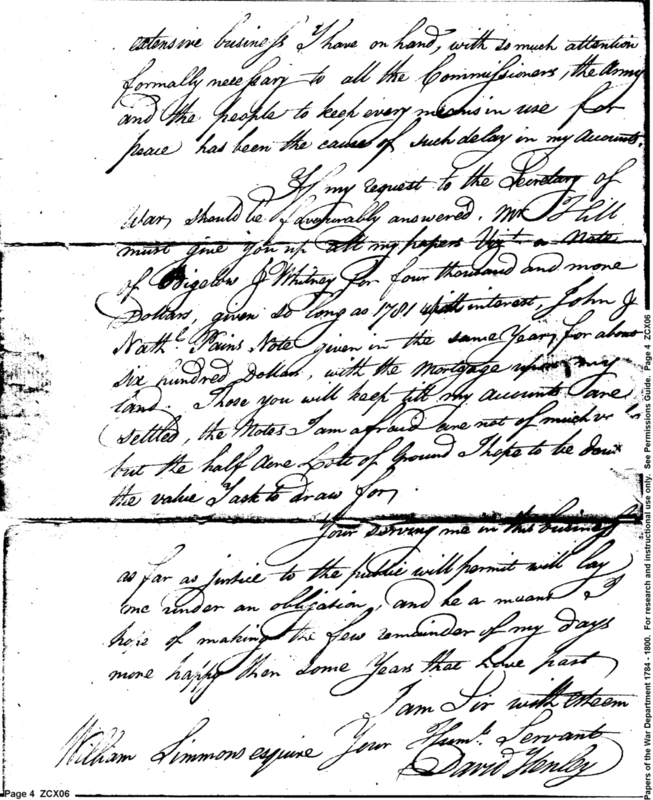 extensive business I have on hand, with so much attention
formally necessary to all the Commissioners, the Army
and the people to keep every means in use for
peace has been the cause of such delay in my accounts.
If my request to the Secretary of
War, should be favourably answered. Mr Hill
must give you up all my papers Vizt. a Note
of Bigelow & Whitney for four thousand and more
Dollars, given so long as 1781 with interest, John &
Nathl. Note given in the same Year, for about
six hundred Dollars, with the Mortgage upon my
land. Those you will keep till my accounts are
settled, the Notes I am afraid are not of much
but the half Acre Lotts of Ground I hope to be
the value I ask to draw for,
Your serving me in this business
as far as justice to the public will permit will lay
me under an obligation, and be a means I
hope of making the few remainder of my days
more happy then some Years that have past
I am Sir with esteem
Your Huml. Servant
William Simmons esquire David Henley
Page 4 ZCX06
Papers of the War Department 1784 - 1800. For research and instructional use only. See Permissions Guide. Page 4 ZCX06